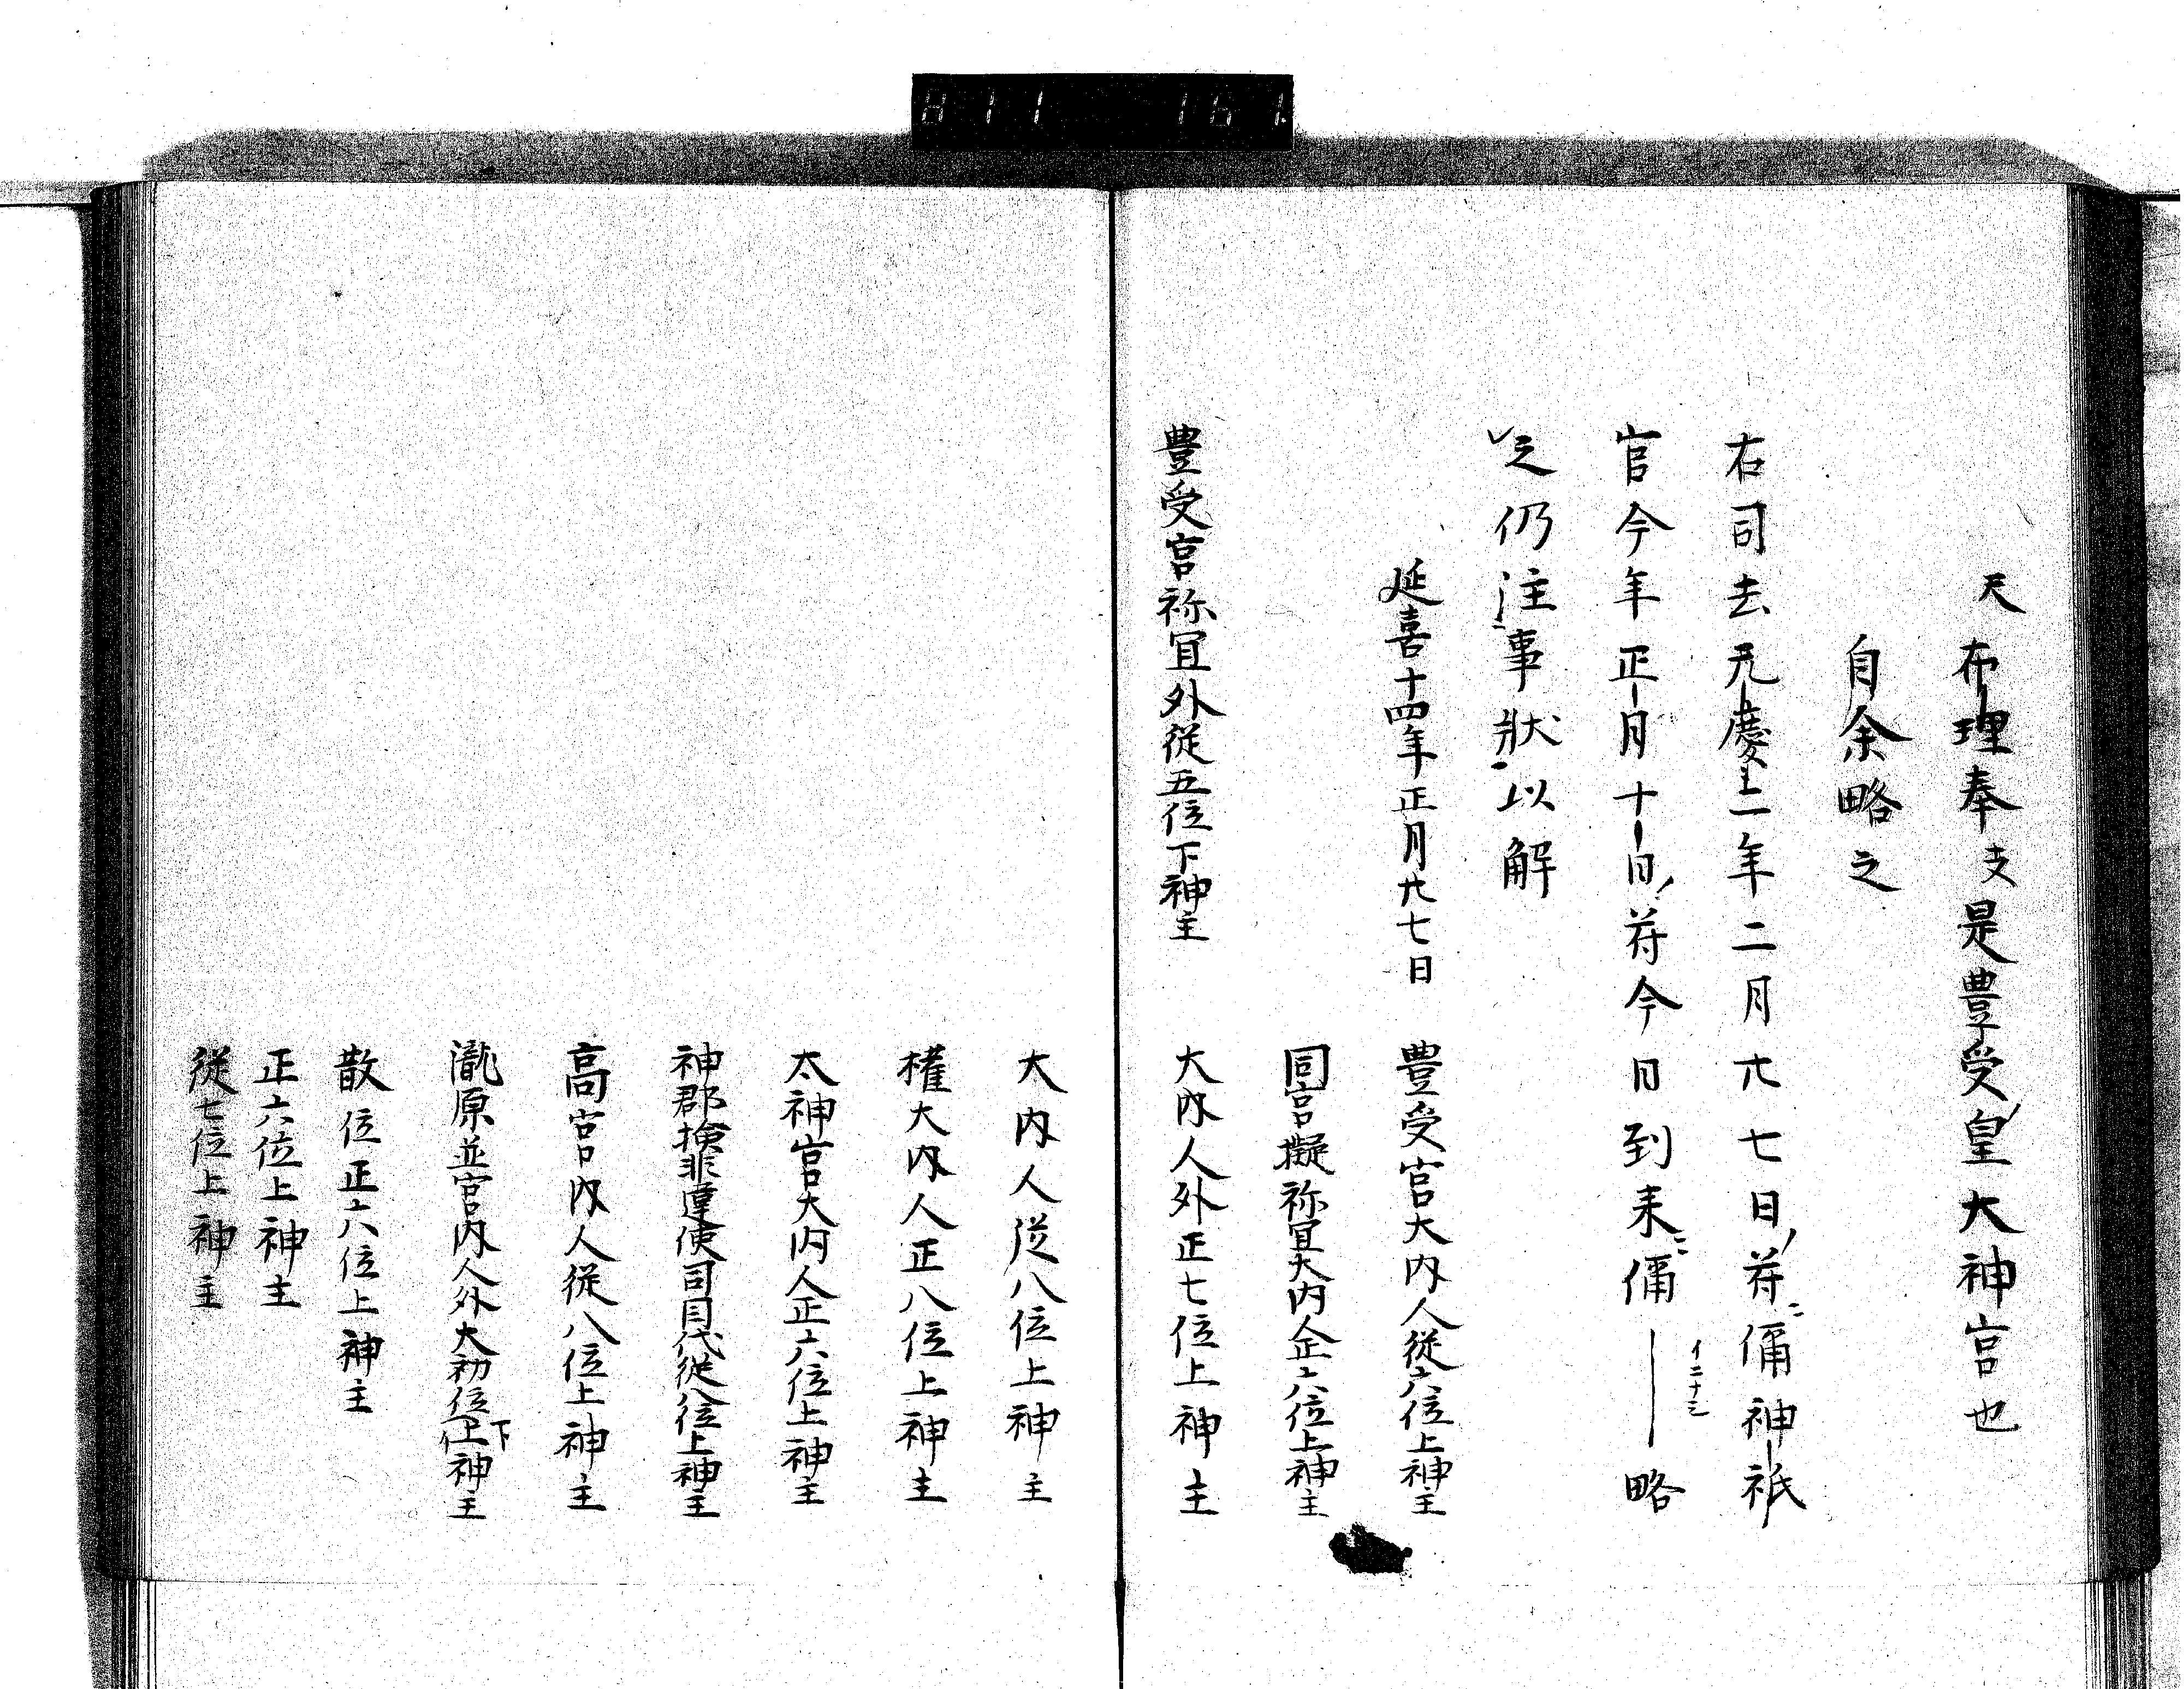 811 161
天布理奉支是豊受皇大神宮也
自余略之
右司去元慶二年二月廿七日符偁神祇
官今年正月十日符今日到来偁――略
イ二十三
之仍注事状以解
延喜十四年正月廿七日
豊受宮大内人従六位上神主
同宮擬祢宜大内人正六位上神主
豊受宮祢宜外従五位下神主
大内人外正七位上神主
大内人従八位上神主
権大内人正八位上神主
太神宮大内人正六位上神主
神郡検非違使司目代従八位上神主
高宮内人従八位上神主
瀧原並宮内人外大初位上神主
下
散位正六位上神主
正六位上神主
従七位上神主